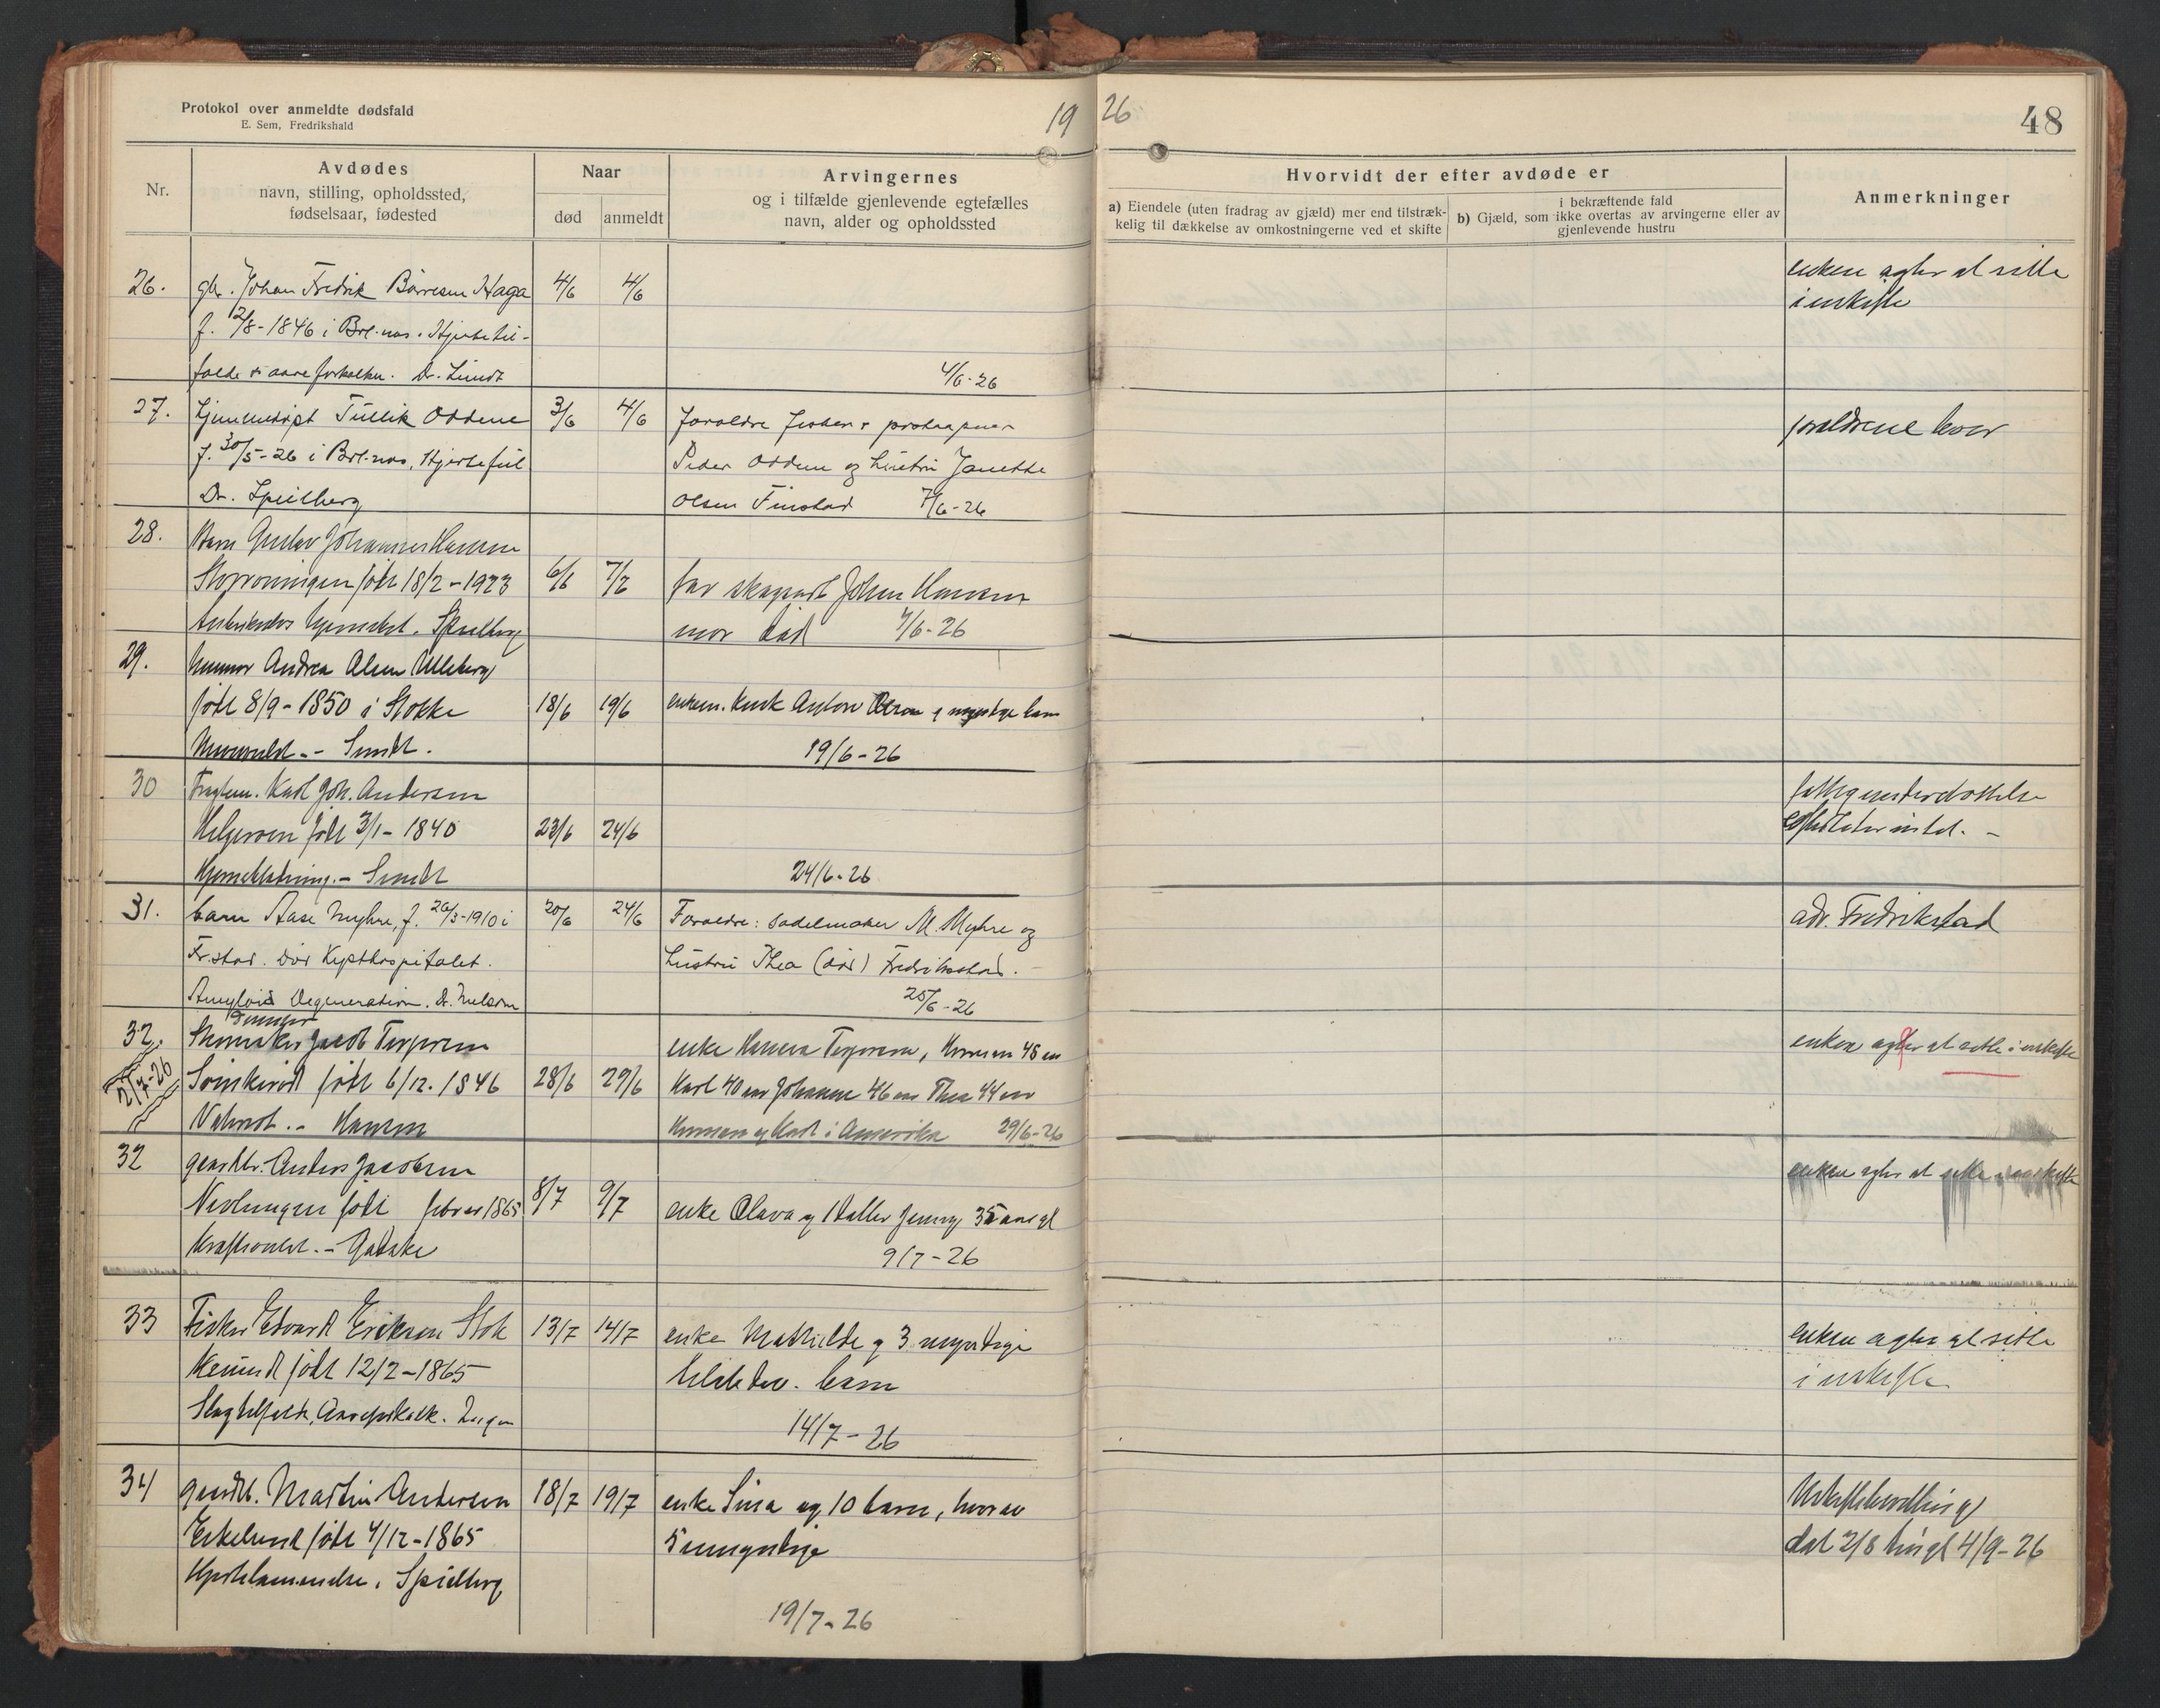 Protokol over anmeldte dødsfald
E. Sem, Fredrikshald
19 26
48
Nr.
Avdødes
navn, stilling, opholdssted,
fødselsaar, fødested
Naar
død
anmeldt
Arvingernes
og i tilfælde gjenlevende egtefælles
navn, alder og opholdssted
Hvorvidt der efter avdøde er
a) Eiendele (uten fradrag av gjæld) mer end tilstræk-
kelig til dækkelse av omkostningerne ved et skifte
i bekræftende fald
b) Gjæld, som ikke overtas av arvingerne eller av
gjenlevende hustru
Anmerkninger
26. gbr. Johan Fredrik Børresen Haga 4/6 4/6 enken agter at sitte
f. 12/8-1846 i Brl.nes. Hjertetil- i uskifte
fælde + aareforkalkn. Dr. Sundt 4/6-26
27. Tullik Oddene 3/6 4/6 Foreldre fisker + forældrene lever
f. 30/5-26 i Brl.nes, Hjertefeil Peder Oddene og hustru Janette
Dr. Spielberg Olsen Finstad 7/6-26
28. Barn Gustav Johannes Hansen
født 18/2-1923 6/6 7/2 far Johan Hansen
Spielberg mor død 7/6-26
29. Andrea Olsen Ulleberg
født 8/9-1850 i Stokke 18/6 19/6 enkem. Anton Olsen og myndige barn
Sundt. 19/6-26
30 Karl Joh. Andersen
Helgeroen født 3/1-1840 23/6 24/6
Sundt 24/6-26
31. barn Aase Myhre, f. 26/3-1910 i 20/6 24/6 Foreldre: Sadelmaker M. Myhre og adr. Fredrikstad
Fr.stad. Død Kysthospitalet. hustru Thea (død) Fredriksstad.
Amyloid Degeneration. Dr. 25/6-26
32. Skomaker Jacob Terjesen enke Hanna Terjesen, Herman 48 aar enken agter at sitte i uskifte
2/7-26 født 6/12.1846 28/6 29/6 Karl 40 aar Johanne 46 aar Thea 44 aar
Hansen Herman og Karl i Amerika 29/6-26
32 gaardbr. Anders Jacobsen enken agter at sitte i uskifte
Nevlungen født febr 1865 8/7 9/7 enke Olava og 1 datter Jenny 35 aar gl
Kræftsvulst. - 9/7-26
33 Fisker Edvard Eriksen Stok 13/7 14/7 enke Mathilde og 3 myndige enken agter at sitte
født 12/2-1865 barn i uskifte
Aareforkalk. 14/7-26
34 gaardb. Martin Andersen 18/7 19/7 enke Sina og 10 barn, hvorav Uskiftebevilling
født 4/12-1865 5 umyndige dat 2/8 tingl 4/9-26
Hjertelammelse. Spielberg
19/7-26